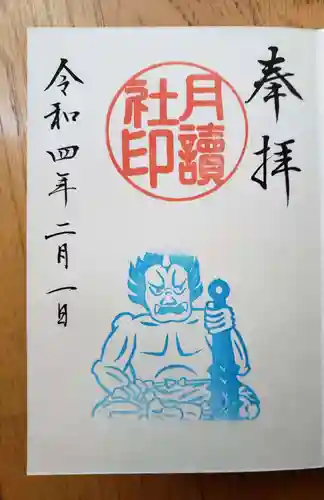 奉拝
月讀
社印
令和四年二月一日